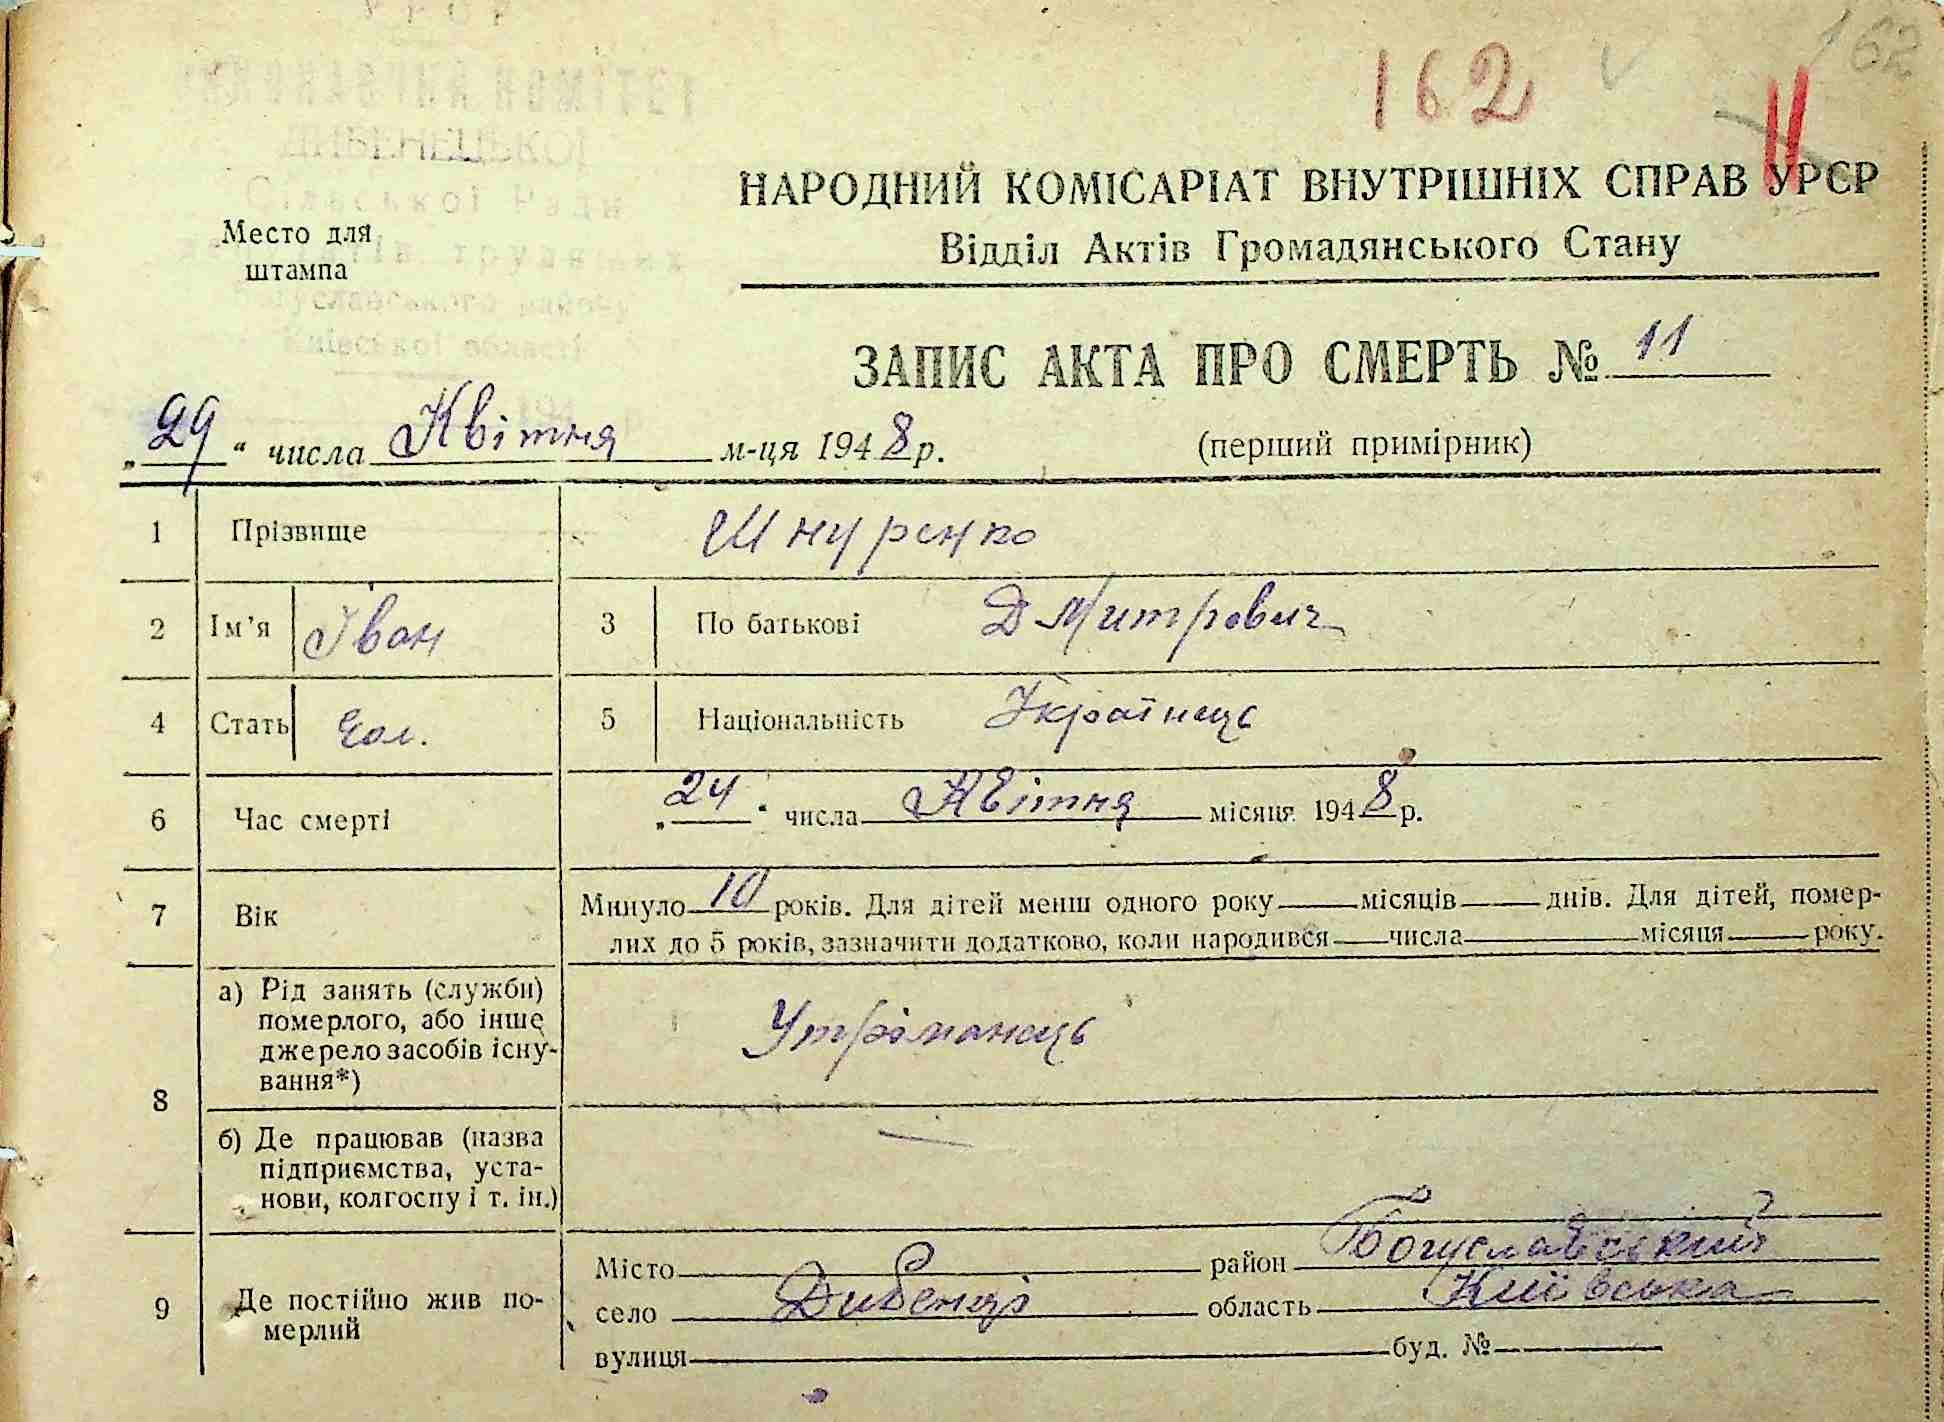 162
162
УРСР
ДИБЕНЕЦЬКОЇ
Сільської Ради
Богуславського району
Київської області
Место для
штампа
НАРОДНИЙ КОМІСАРІАТ ВНУТРІШНІХ СПРАВ УРСР
Відділ Актів Громадянського Стану
ЗАПИС АКТА ПРО СМЕРТЬ № 11
„29“ числа Квітня м-ця 1948 р.
(перший примірник)
1 Прізвище Шнуренко
2 Ім'я Іван 3 По батькові Дмитрович
4 Стать чол. 5 Національність Українець
6 Час смерті „24“ числа Квітня місяця 1948 р.
7 Вік Минуло 10 років. Для дітей менш одного року — місяців — днів. Для дітей, помер-
лих до 5 років, зазначити додатково, коли народився — числа — місяця — року.
8 а) Рід занять (служби)
померлого, або інше
джерело засобів існу-
вання*)
Утріманець
б) Де працював (назва
підприємства, уста-
нови, колгоспу і т. ін.)
—
9 Де постійно жив по-
мерлий
Місто — район Богуславський
село Дибенці область Київська
вулиця — буд. № —